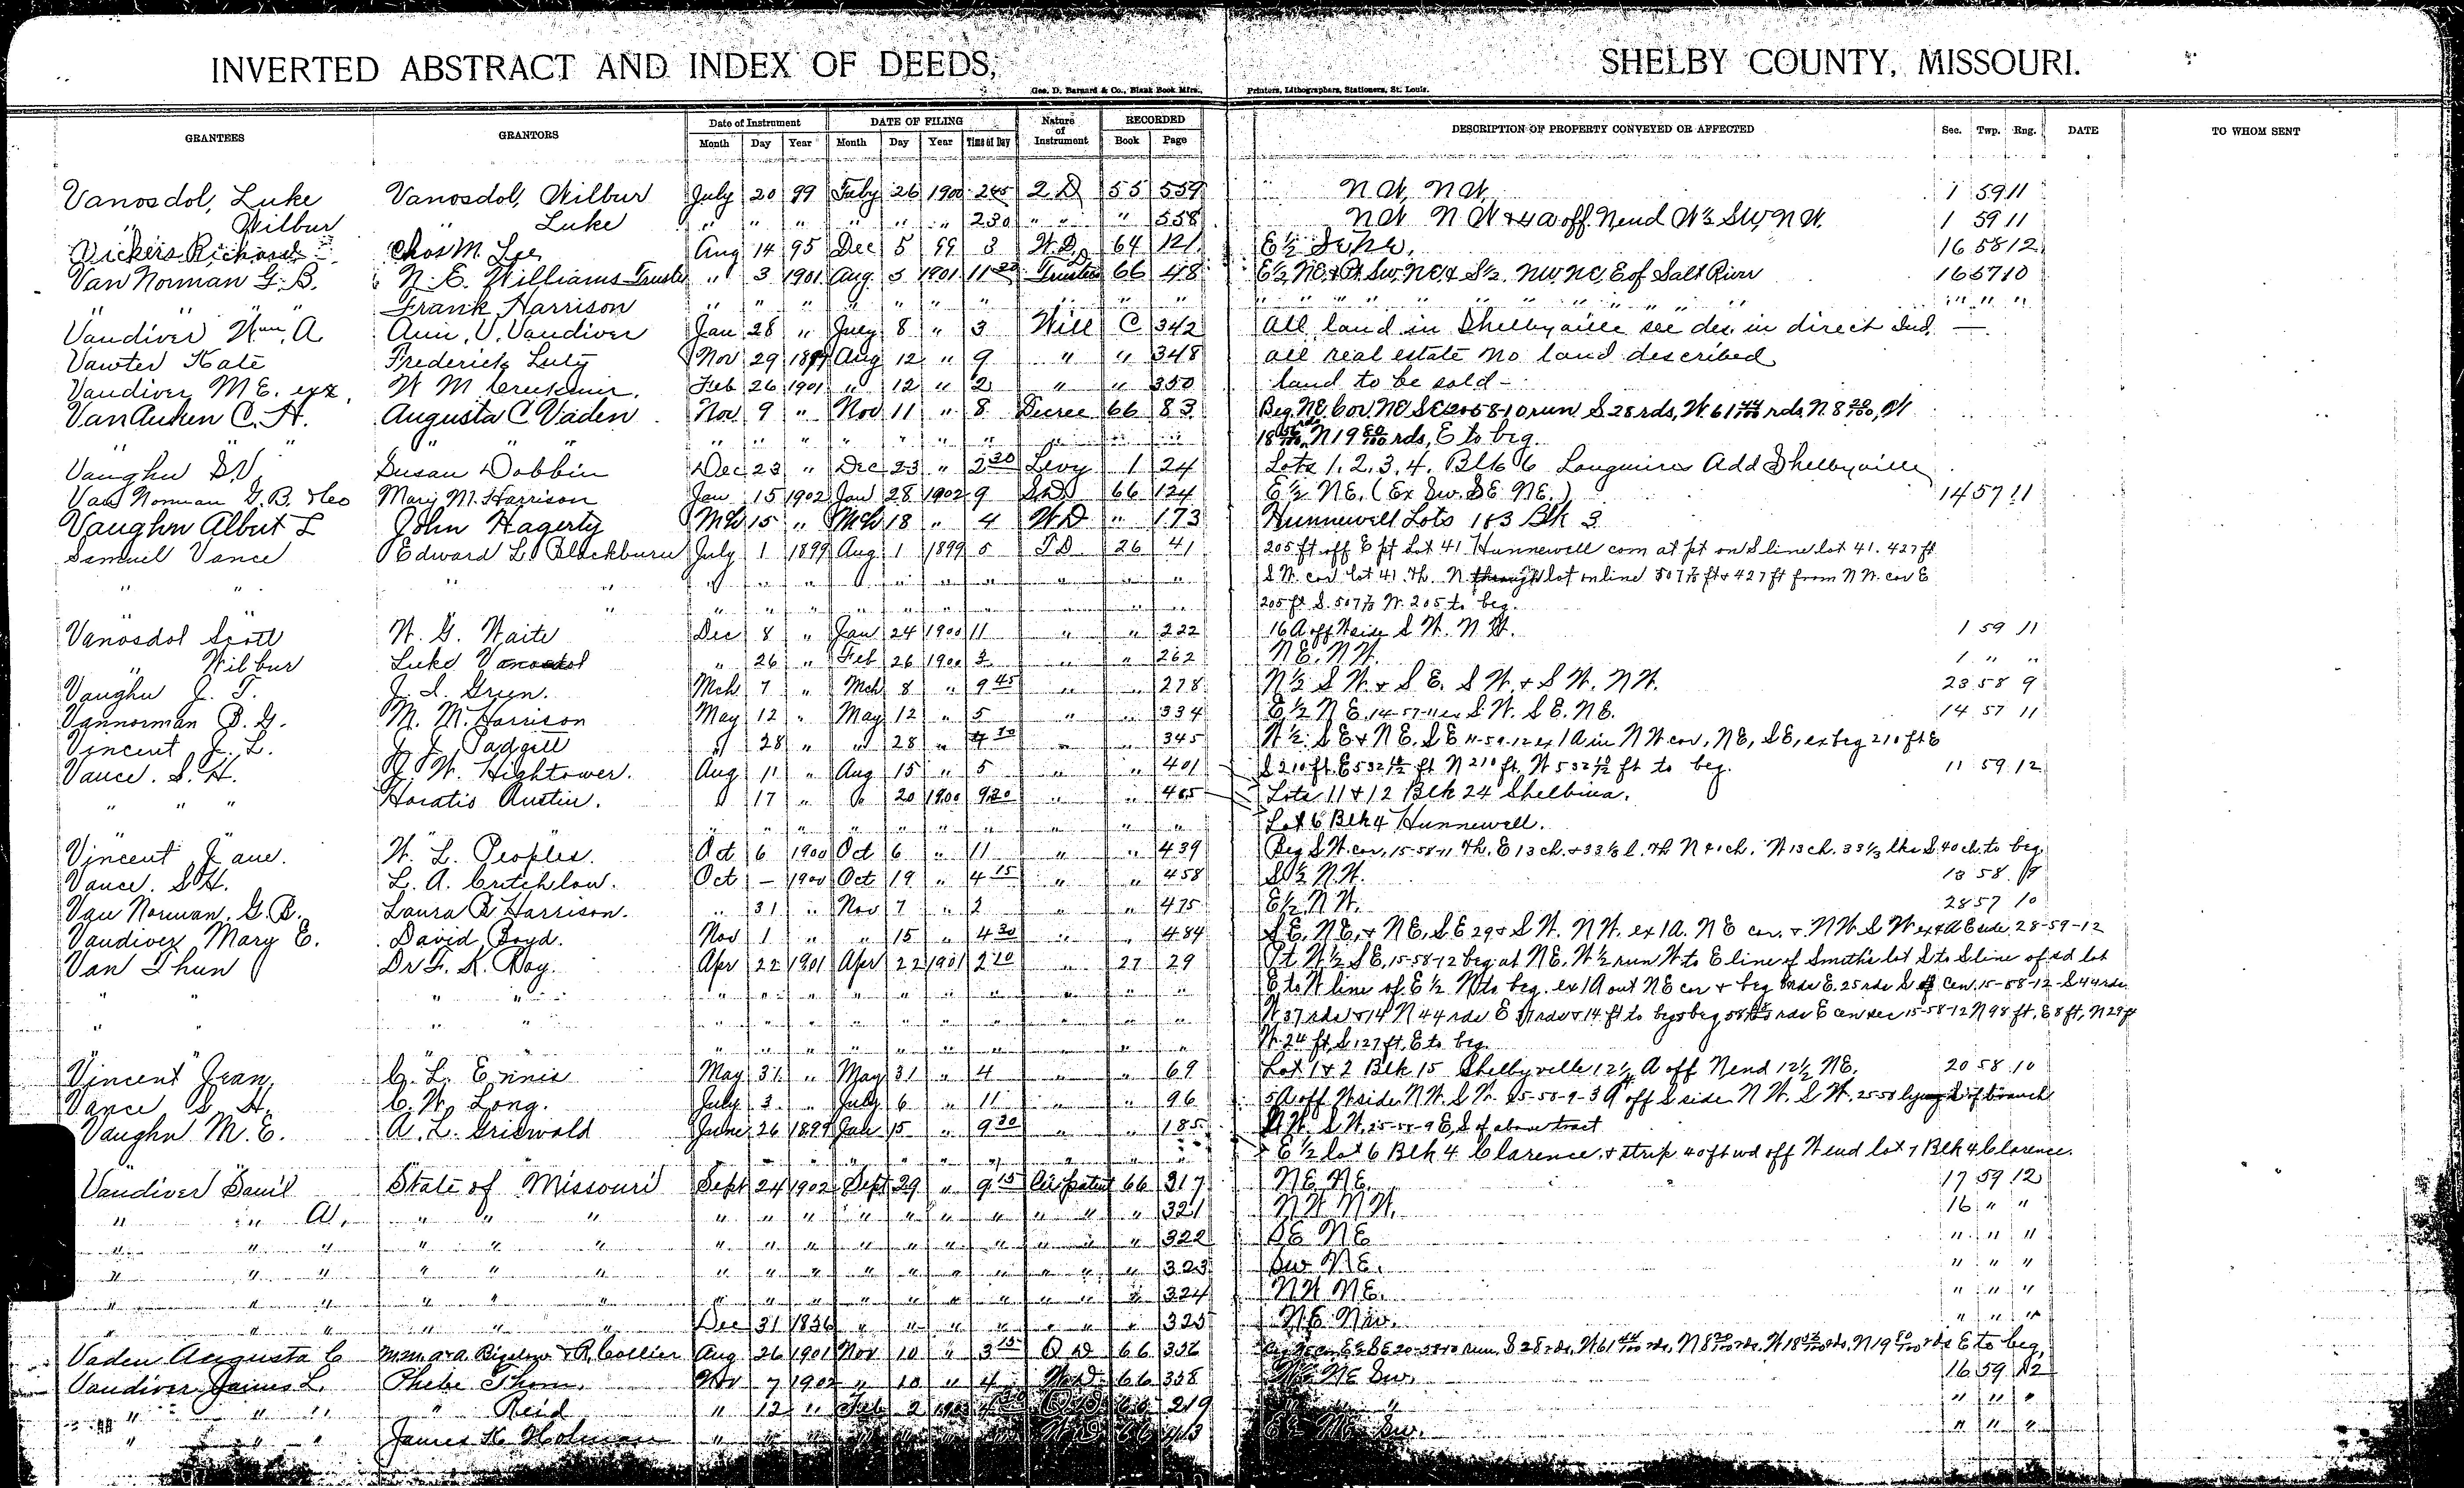 INVERTED ABSTRACT AND INDEX OF DEEDS, SHELBY COUNTY, MISSOURI.
Geo. D. Barnard & Co., Blank Book Mfrs., Printers, Lithographers, Stationers, St. Louis.
GRANTEES GRANTORS Date of Instrument DATE OF FILING Nature of Instrument RECORDED DESCRIPTION OF PROPERTY CONVEYED OR AFFECTED Sec. Twp. Rng. DATE TO WHOM SENT
Month Day Year Month Day Year Time of Day Book Page
Vanosdol, Luke Vanosdol, Wilbur July 20 99 Feby 26 1900 245 2 D 55 559 N W, N W, 1 59 11
" Wilbur " Luke " " " " " " 230 " " " 558 N W N W & 4 a off N end W½ SW, N W. 1 59 11
Vickers Richard Chas M. Lee Aug 14 95 Dec 5 99 3 W.D. 64 121 E½ 16 58 12
Van Norman G. B. N. E. Williams Trustee " 3 1901 Aug 5 1901 11 Trustee D 66 48 E½ NE, & Pt SW. NE, & S½ NW. NE, E of Salt River 16 57 10
" " Frank Harrison " " " " " " " " " " " " " " " " " " " " "
Vandiver Wm. A Ann. V. Vandiver Jan 28 " July 8 " 3 Will C 342 all land in Shelbyville see des. in direct Ind. —
Vawter Kate Frederick Luty Nov 29 1899 Aug 12 " 9 " " 348 all real estate no land described
Vandiver M E. exx. W M Feb 26 1901 " 12 " 2 " " 350 land to be sold -
VanAuken C. H. Augusta C Vaden Nov 9 " Nov 11 " 8 Decree 66 83 Beg. NE. Cor. NE SE 20-58-10 run S 28 rds, W. 61 44/100 rds, N. 8 20/100, W
" " " " " " " " " " " " " 18 56/100 rds, N 19 80/100 rds, E to beg.
Vaughn S V. Susan Dobbin Dec 23 " Dec 23 " 2 30 Levy 1 24 Lots 1. 2. 3. 4. Blk 6 Add Shelbyville
Van Norman G. B. & Leo Mary M. Harrison Jan 15 1902 Jan 28 1902 9 66 124 E ½ NE. (Ex Sw. SE NE.) 14 57 11
Vaughn Albert L John Hagerty Mch 15 " Mch 18 " 4 W D " 173 Hunnewell Lots 1 & 3 Blk 3
Samuel Vance Edward L. Blackburn July 1 1899 Aug 1 1899 5 T D 26 41 205 ft off E pt Lot 41 Hunnewell com at pt on S line lot 41. 427 ft
" " " " " " " " " " " " S W. cor lot 41. Th. N through lot on line 507⅓ ft & 427 ft from N W. cor E
" " " " " " " " " " " 205 ft S. 507⅓ W. 205 to beg.
Vanosdol Scott W. G. Waite Dec 8 " Jan 24 1900 11 " " 222 16 A off W side S W. N W. 1 59 11
" Wilbur Luke Vanosdol " 26 " Feb 26 1900 3 " " 262 N E. N W. 1 " "
Vaughn J. T. J. S. Green. Mch 7 " Mch 8 " 9 45 " " 278 N ½ S W. & S E. S W. & S W. N W. 23 58 9
Vannorman B. G. M. M. Harrison May 12 " May 12 " 5 " " 334 E ½ N E. 14-57-11 ex S W. S E. N E. 14 57 11
Vincent J. L. J. J. Padgett " 28 " " 28 " 4 30 " " 345 W ½ S E & N E. S E 11-59-12 ex 1 A in N W cor, NE, SE, ex beg 210 ft E
Vance. S. H. J. W. Hightower. Aug 11 " Aug 15 " 5 " " 401 S 210 ft E 532½ ft N 210 ft, W 532½ ft to beg. 11 59 12
" " " Horatio Austin. " 17 " " 20 1900 9 20 " " 405 Lots 11 & 12 Blk 24 Shelbina.
" " " " " " " " " " Lot 6 Blk 4 Hunnewell.
Vincent Jane. W. L. Peoples. Oct 6 1900 Oct 6 " 11 " " 439 Beg S W. cor. 15-58-11 Th. E 13 ch. & 33⅓ l. Th N 40 ch. W 13 ch. 33⅓ lks S 40 ch. to beg
Vance. S H. L. A. Critchlow. Oct — 1900 Oct 19 " 4 15 " " 458 S ½ N. W. 13 58 9
Van Norman. G. B. Laura B Harrison. " 31 " Nov 7 " 2 " " 475 E ½ N W. 28 57 10
Vandiver Mary E. David Boyd. Nov 1 " " 15 " 4 30 " " 484 S E. N E, & N E, S E 29 & S W. N W. ex 1 A. N E cor. & N W. S W ex 4 A E side. 28-59-12
Van Thun Dr F. K. Ray. Apr 22 1901 Apr 22 1901 2 10 " 27 29 Pt. W ½ S E, 15-58-12 beg at N E. W ½ run W to E line of Smith's lot S to S line of sd lot
" " " " " " " " " " " " " E to W line of E ½ N to beg. ex 1 A out N E cor & beg rds E. 25 rds S of Cen. 15-58-12-S 44 rds
" " " " " " " " " " " " " W. 37 rds & 14 N 44 rds E 37 rds & 14 ft to beg & beg 58 rds E cen sec 15-58-12 N 98 ft, E 8 ft, N 29 ft
" " " " " " " " " " W. 24 ft, S 127 ft, E to beg.
Vincent Jean. C. L. Ennis May 31 " May 31 " 4 " " 69 Lot 1 & 2 Blk 15 Shelbyville 12½ A off N end 12½ NE. 20 58 10
Vance S H. C. W. Long. July 3 " July 6 " 11 " " 96 5 A off W side N W. S W. 25-58-9-3 A off S side N W. S W. 25-58 lying S of branch
Vaughn M. E. A. L. Griswold June 26 1899 Jan 15 " 9 30 " " 185 N W. S W. 25-58-9 E, S of above tract
" " " " " " " " " E ½ lot 6 Blk 4 Clarence & strip 40 ft wd off W end lot 7 Blk 4 Clarence.
Vandiver Sam'l State of Missouri Sept 24 1902 Sept 29 " 9 15 66 317 N E. N E. 17 59 12
" " A. " " " " " " " " " " " " " 321 N W N W. 16 " "
" " " " " " " " " " " " " " " " 322 S E N E " " "
" " " " " " " " " " " " " " " " 323 Sw N E. " " "
" " " " " " " " " " " " " " " " 324 N W N E. " " "
" " " " " " Dec 31 1836 " " " " " " " 325 N E Nw. " " "
Vaden Augusta C M.M. & A. Bigelow & A Collier Aug 26 1901 Nov 10 " 3 15 Q D 66 352 S 28 rds. W 61 44/100 rds, N 8 20/100 rds. W 18 rds, N 19 rds E to beg.
Vandiver James L. Phebe Thom. Nov 7 1902 " 10 " 4 W D 66 358 NE Sw. 16 59 12
" " " " Reid " 12 " Feb 2 219 " " " " "
" " " James K Holman " " " W D 66 Sw. " " "